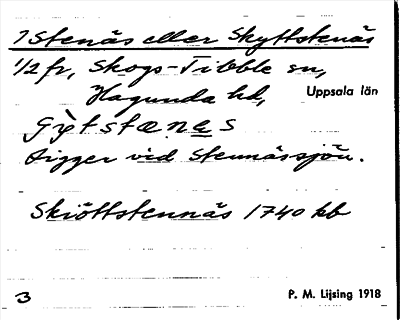 ? Stenäs eller Skyttstenäs
1/2 fr, Skogs-Tibble sn,
Hagunda hd, Uppsala län
ligger vid Stennässjön.
Skiöttstennäs 1740 kb
3 P. M. Lijsing 1918